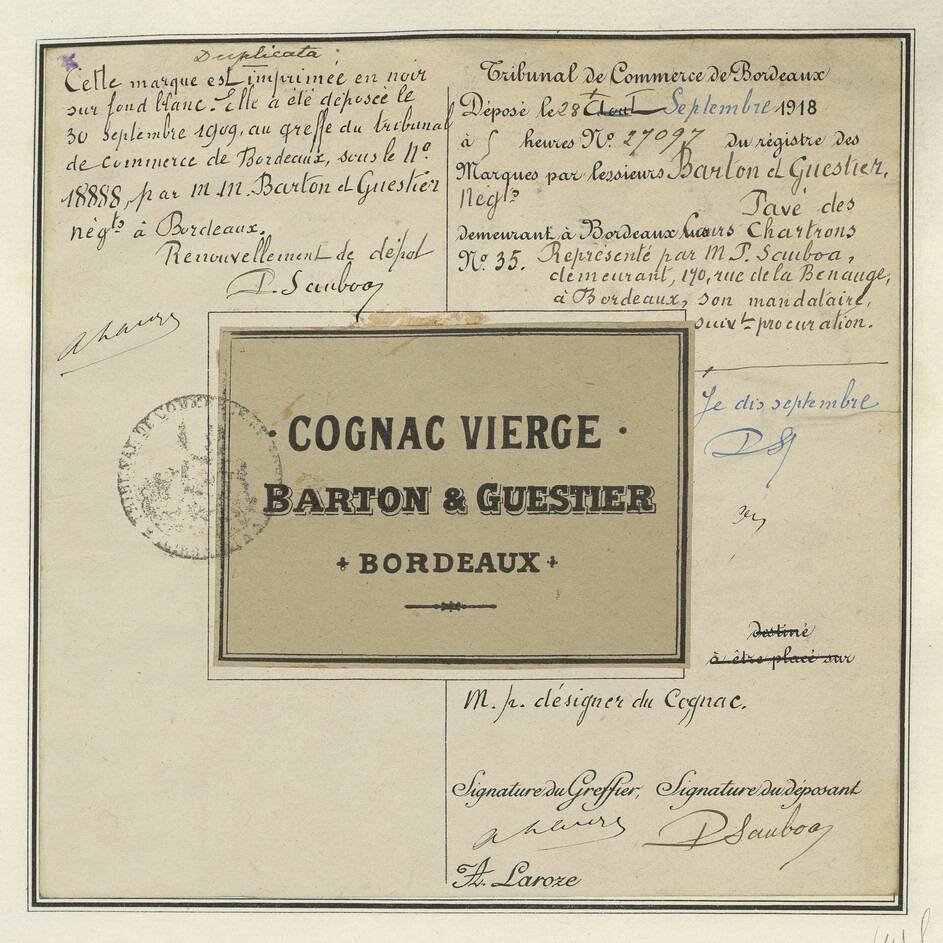 Duplicata.
Cette marque est imprimée en noir
sur fond blanc. Elle a été déposée le
30 septembre 1909, au greffe du tribunal
de commerce de Bordeaux, sous le N°
18888, par M.M. Barton et Guestier
négts à Bordeaux.
Renouvellement de dépôt
P. Sauboa
Tribunal de Commerce de Bordeaux
Déposé le 28 Août Septembre 1918
à 5 heures N° 27097 du régistre des
Marques par lessieurs Barton et Guestier,
Négts
Pavé des
demeurant à Bordeaux Cours Chartrons
N° 35. Représenté par M P. Sauboa,
demeurant, 170, rue de la Benauge,
à Bordeaux, son mandataire,
suivt procuration.
Je dis septembre
PS
COGNAC VIERGE
BARTON & GUESTIER
BORDEAUX
TRIBUNAL DE COMMERCE DE
destiné
à être placé sur
M. p. désigner du Cognac.
Signature du Greffier, Signature du déposant
P Sauboa
A. Laroze